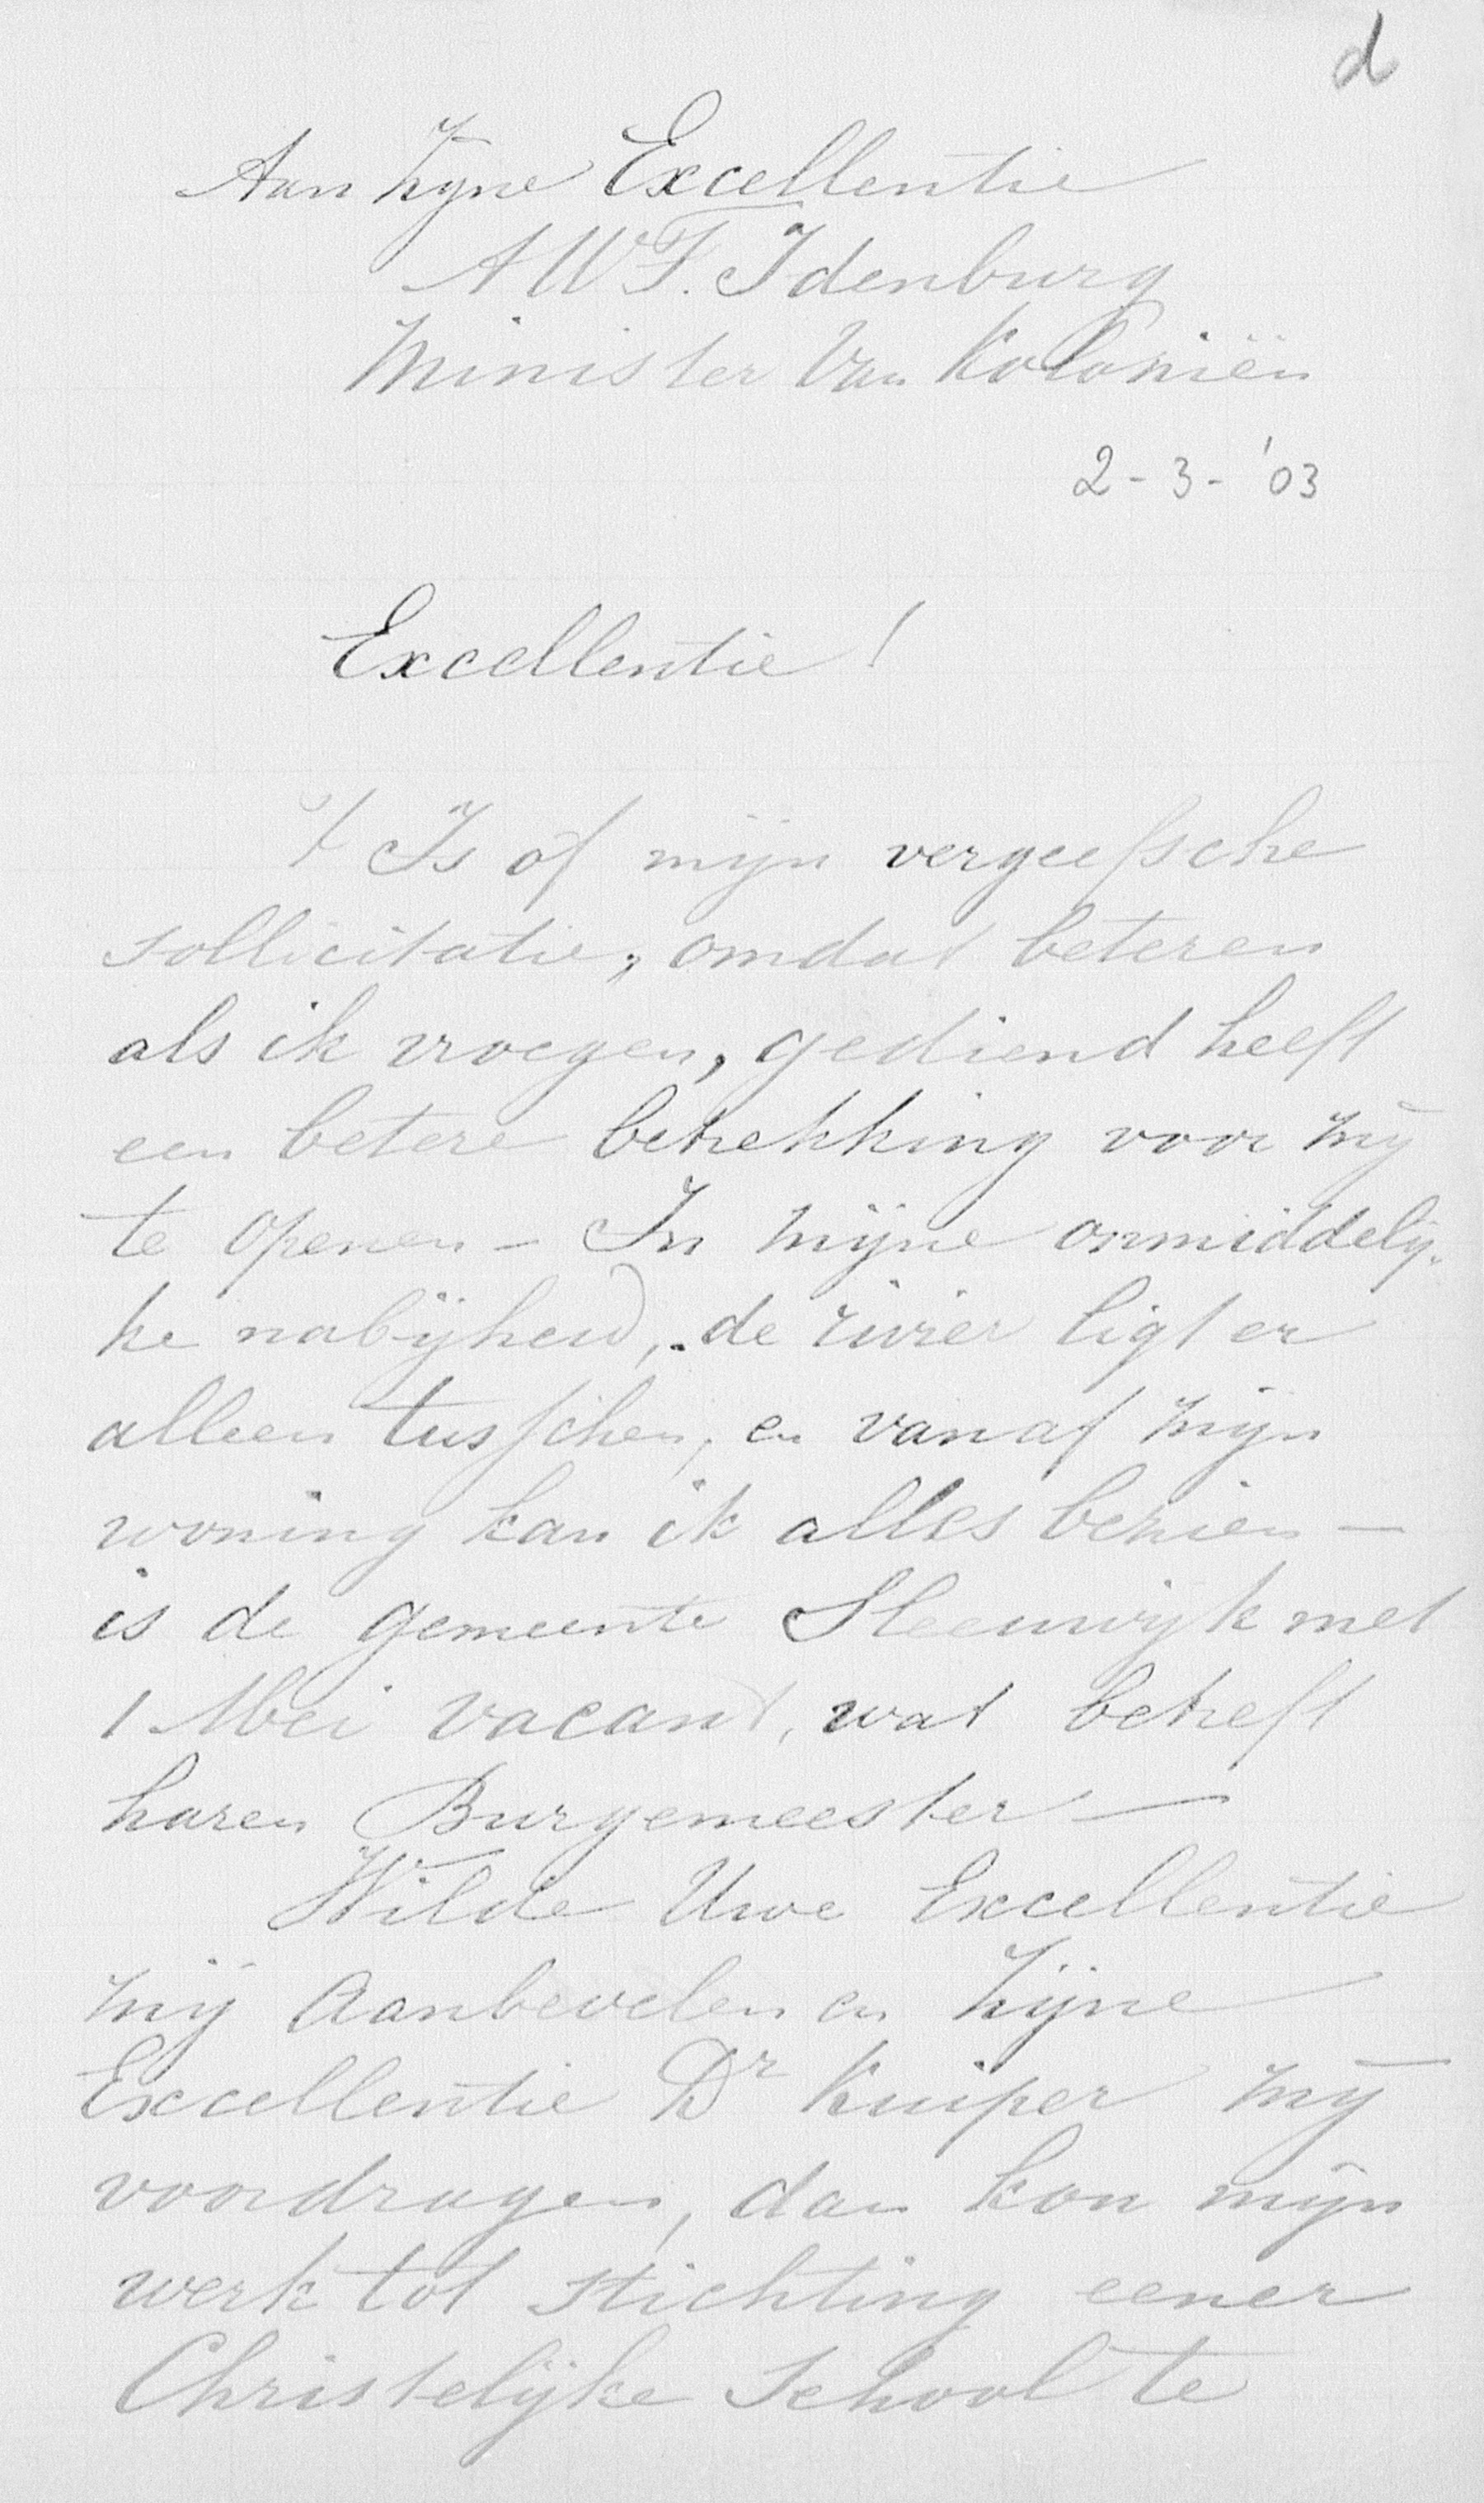 d
Aan Zyne Excellentie
A W F. Idenburg
Minister van Koloniën
2-3-'03
Excellentie!
't Is of mijn vergeefsche
sollicitatie, omdat beteren
als ik vroegen, gediend heeft
een betere betrekking voor mij
te openen - In mijne onmiddelij-
ke nabijheid, de rivier ligt er
alleen tusschen, en vanaf mijn
woning kan ik alles bezien -
is de gemeente Sleeuwijk met
1 Mei vacant, wat betreft
haren Burgemeester -
Wilde Uwe Excellentie
mij aanbevelen en Zijne
Excellentie Dr Kuiper mij
voordragen, dan kon mijn
werk tot stichting eener
Christelijke School te